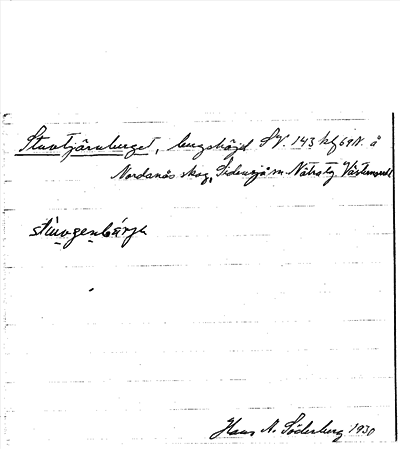 Stuvtjärnberget, bergshöjd SV. 143 kf 69N. å
Nordanås skog, Sidensjö sn. Nätra tg Västernorrl
stuvgenbärje
Hans N. Söderberg 1930